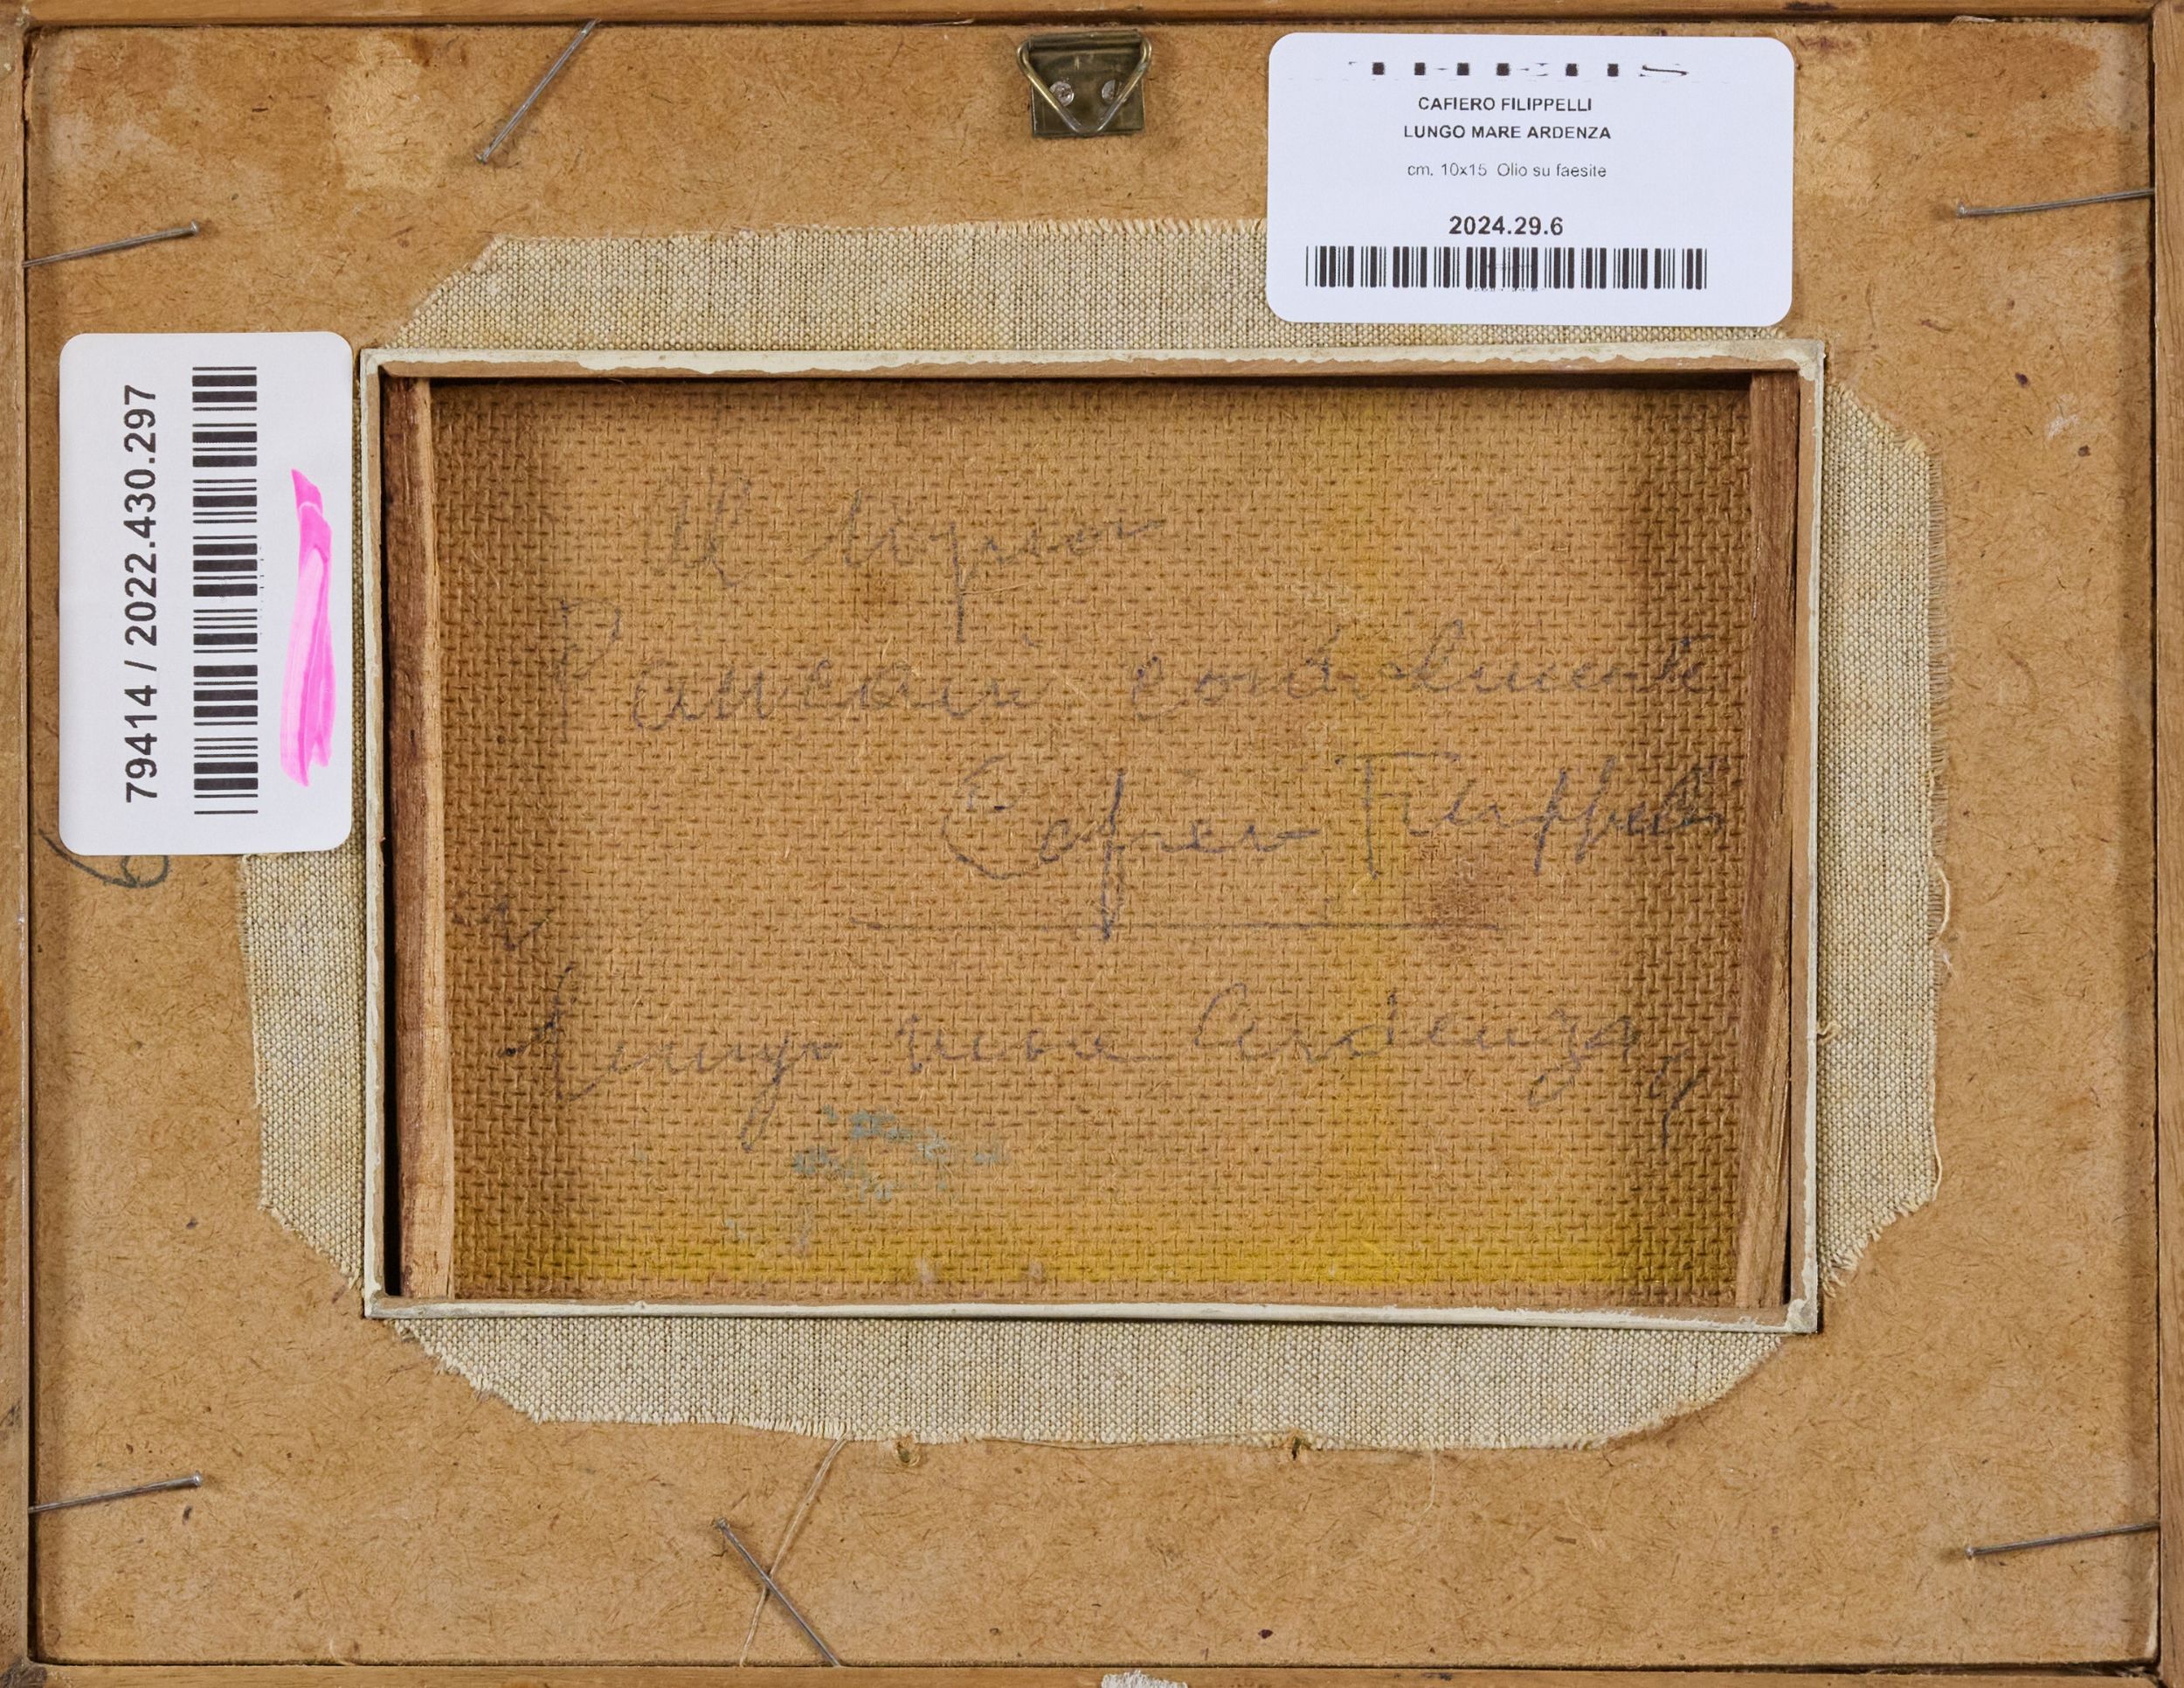 CAFIERO FILIPPELLI
LUNGO MARE ARDENZA
cm. 10x15 Olio su faesite
2024.29.6
79414 / 2022.430.297
Al Signor
Pancani cordialmente
Cafiero Filippelli
Lungo mare Ardenza
6